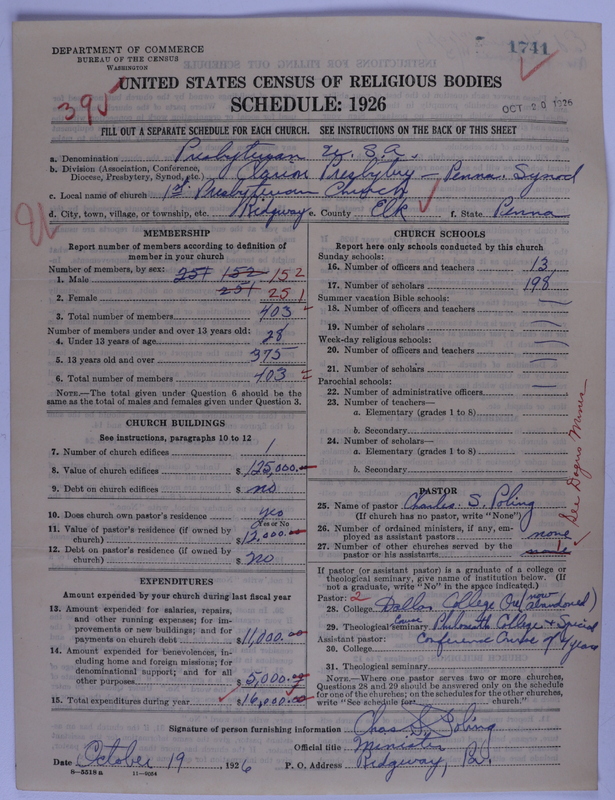 DEPARTMENT OF COMMERCE
BUREAU OF THE CENSUS
WASHINGTON
1741
UNITED STATES CENSUS OF RELIGIOUS BODIES
SCHEDULE: 1926
OCT 20 1926
FILL OUT A SEPARATE SCHEDULE FOR EACH CHURCH. SEE INSTRUCTIONS ON THE BACK OF THIS SHEET
a. Denomination Presbyterian U.S.A.
b. Division (Association, Conference, Diocese, Presbytery, Synod, etc.) Clarion Presbytry - Penna. Synod
c. Local name of church 1st Presbyterian Church
d. City, town, village, or township, etc. Ridgway e. County Elk f. State Penna
MEMBERSHIP
Report number of members according to definition of member in your church
Number of members, by sex:
1. Male 251 152 152
2. Female 251 251
3. Total number of members 403
Number of members under and over 13 years old:
4. Under 13 years of age 28
5. 13 years old and over 375
6. Total number of members 403
NOTE.—The total given under Question 6 should be the same as the total of males and females given under Question 3.
CHURCH BUILDINGS
See instructions, paragraphs 10 to 12
7. Number of church edifices 1
8. Value of church edifices $ 125,000.
9. Debt on church edifices $ no
10. Does church own pastor's residence? yes
Yes or No
11. Value of pastor's residence (if owned by church) $ 12,000.
12. Debt on pastor's residence (if owned by church) $ no
EXPENDITURES
Amount expended by your church during last fiscal year
13. Amount expended for salaries, repairs, and other running expenses; for improvements or new buildings; and for payments on church debt $ 11,000.00
14. Amount expended for benevolences, including home and foreign missions; for denominational support; and for all other purposes $ 5,000.00
15. Total expenditures during year $ 16,000.00
CHURCH SCHOOLS
Report here only schools conducted by this church
Sunday schools:
16. Number of officers and teachers 13
17. Number of scholars 198
Summer vacation Bible schools:
18. Number of officers and teachers —
19. Number of scholars —
Week-day religious schools:
20. Number of officers and teachers —
21. Number of scholars —
Parochial schools:
22. Number of administrative officers —
23. Number of teachers—
a. Elementary (grades 1 to 8)
b. Secondary
24. Number of scholars—
a. Elementary (grades 1 to 8)
b. Secondary
PASTOR
25. Name of pastor Charles S. Poling
(If church has no pastor, write "None")
26. Number of ordained ministers, if any, employed as assistant pastors none
27. Number of other churches served by the pastor or his assistants 1
If pastor (or assistant pastor) is a graduate of a college or theological seminary, give name of institution below. (If not a graduate, write "No" in the space indicated.)
Pastor: 2
28. College Dallas College Ore (now abandoned)
29. Theological seminary Philomath College & Special
Conference Course of 4 years
Assistant pastor:
30. College
31. Theological seminary
NOTE.—Where one pastor serves two or more churches, Questions 28 and 29 should be answered only on the schedule for one of the churches; on the schedules for the other churches, write "See schedule for church."
Signature of person furnishing information Chas S. Poling
Official title Minister
Date October 19 , 1926 P. O. Address Ridgway, Pa.
8—5518 a 11—9064